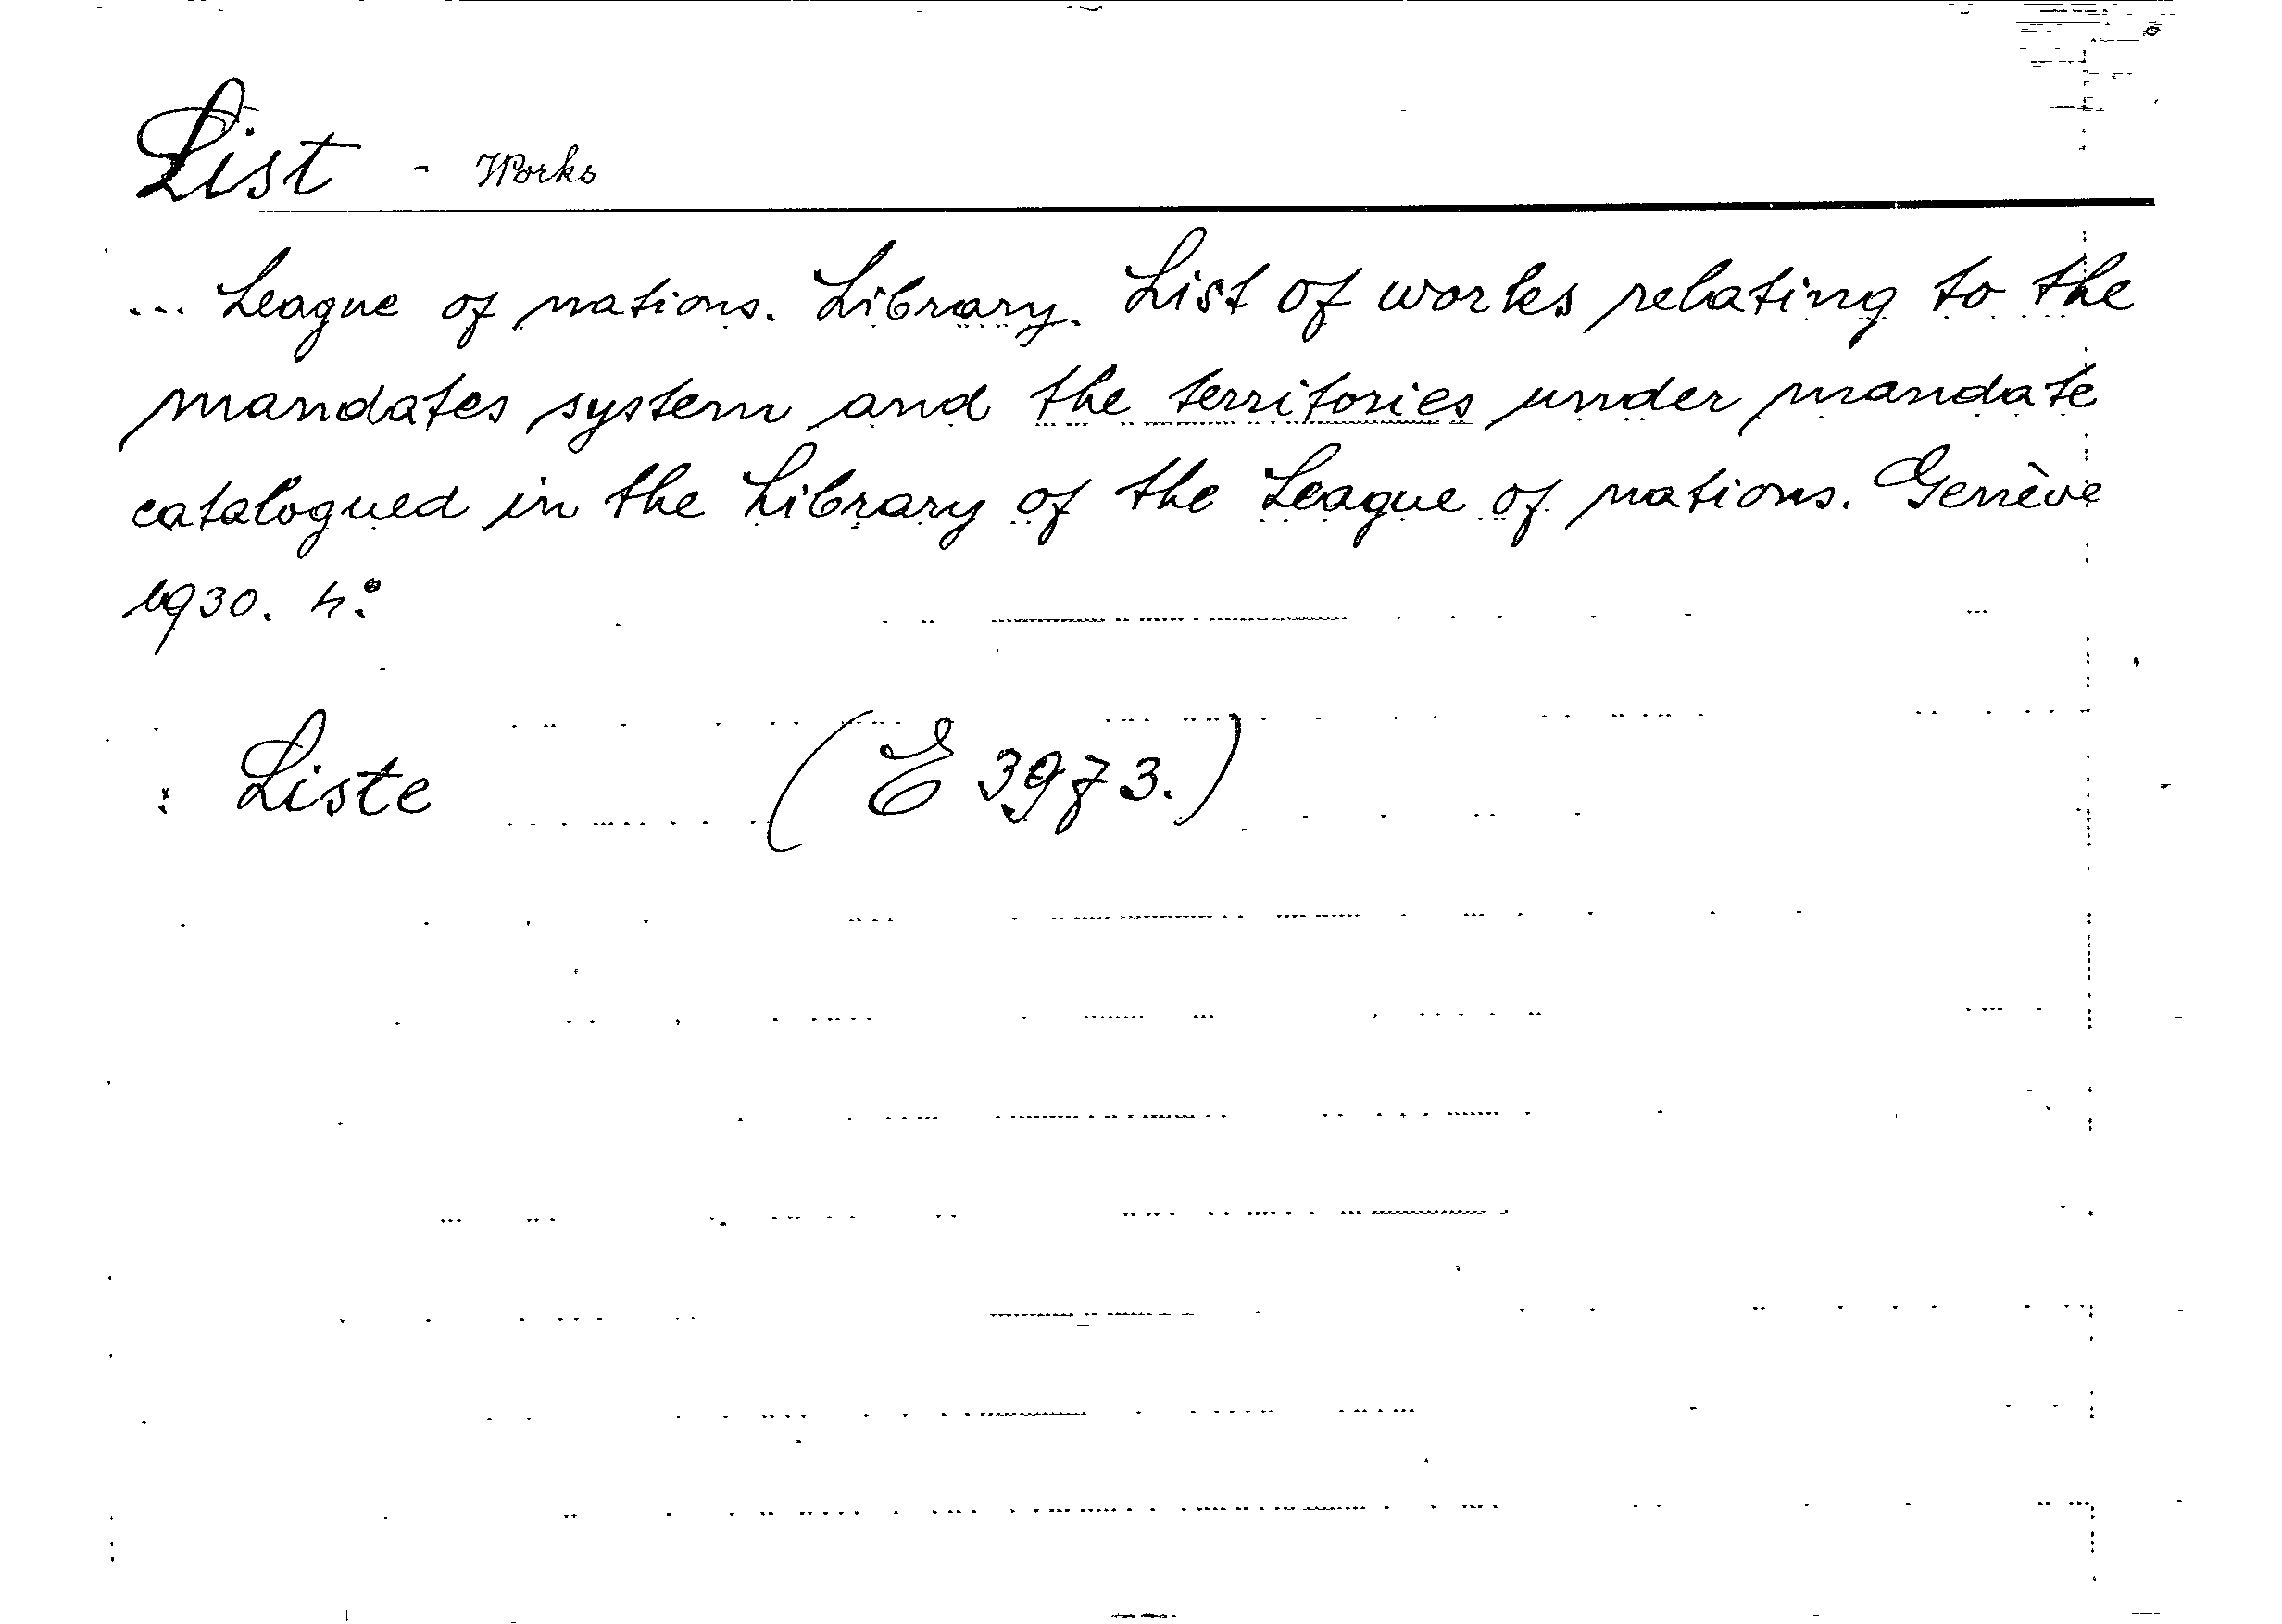 List - Works
... League of nations. Library. List of works relating to the
mandates system and the territories under mandate
catalogued in the Library of the League of nations. Genève
1930. 4°.
: Liste (E 3973.)